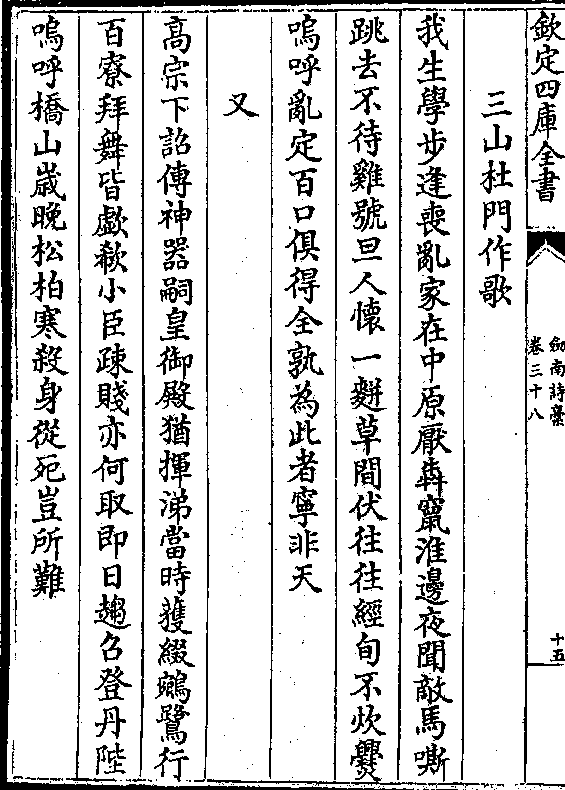 欽定四庫全書
劒南詩藁
卷三十八
十五
三山杜門作歌
我生學步逢喪亂家在中原厭犇竄淮邊夜聞敵馬嘶
跳去不待雞號旦人懷一麨草間伏往往經旬不炊爨
嗚呼亂定百口俱得全孰為此者寧非天
又
高宗下詔傳神器嗣皇御殿猶揮涕當時獲綴鵷鷺行
百寮拜舞皆歔欷小臣疎賤亦何取即日趨召登丹陛
嗚呼橋山歲晚松柏寒殺身從死豈所難